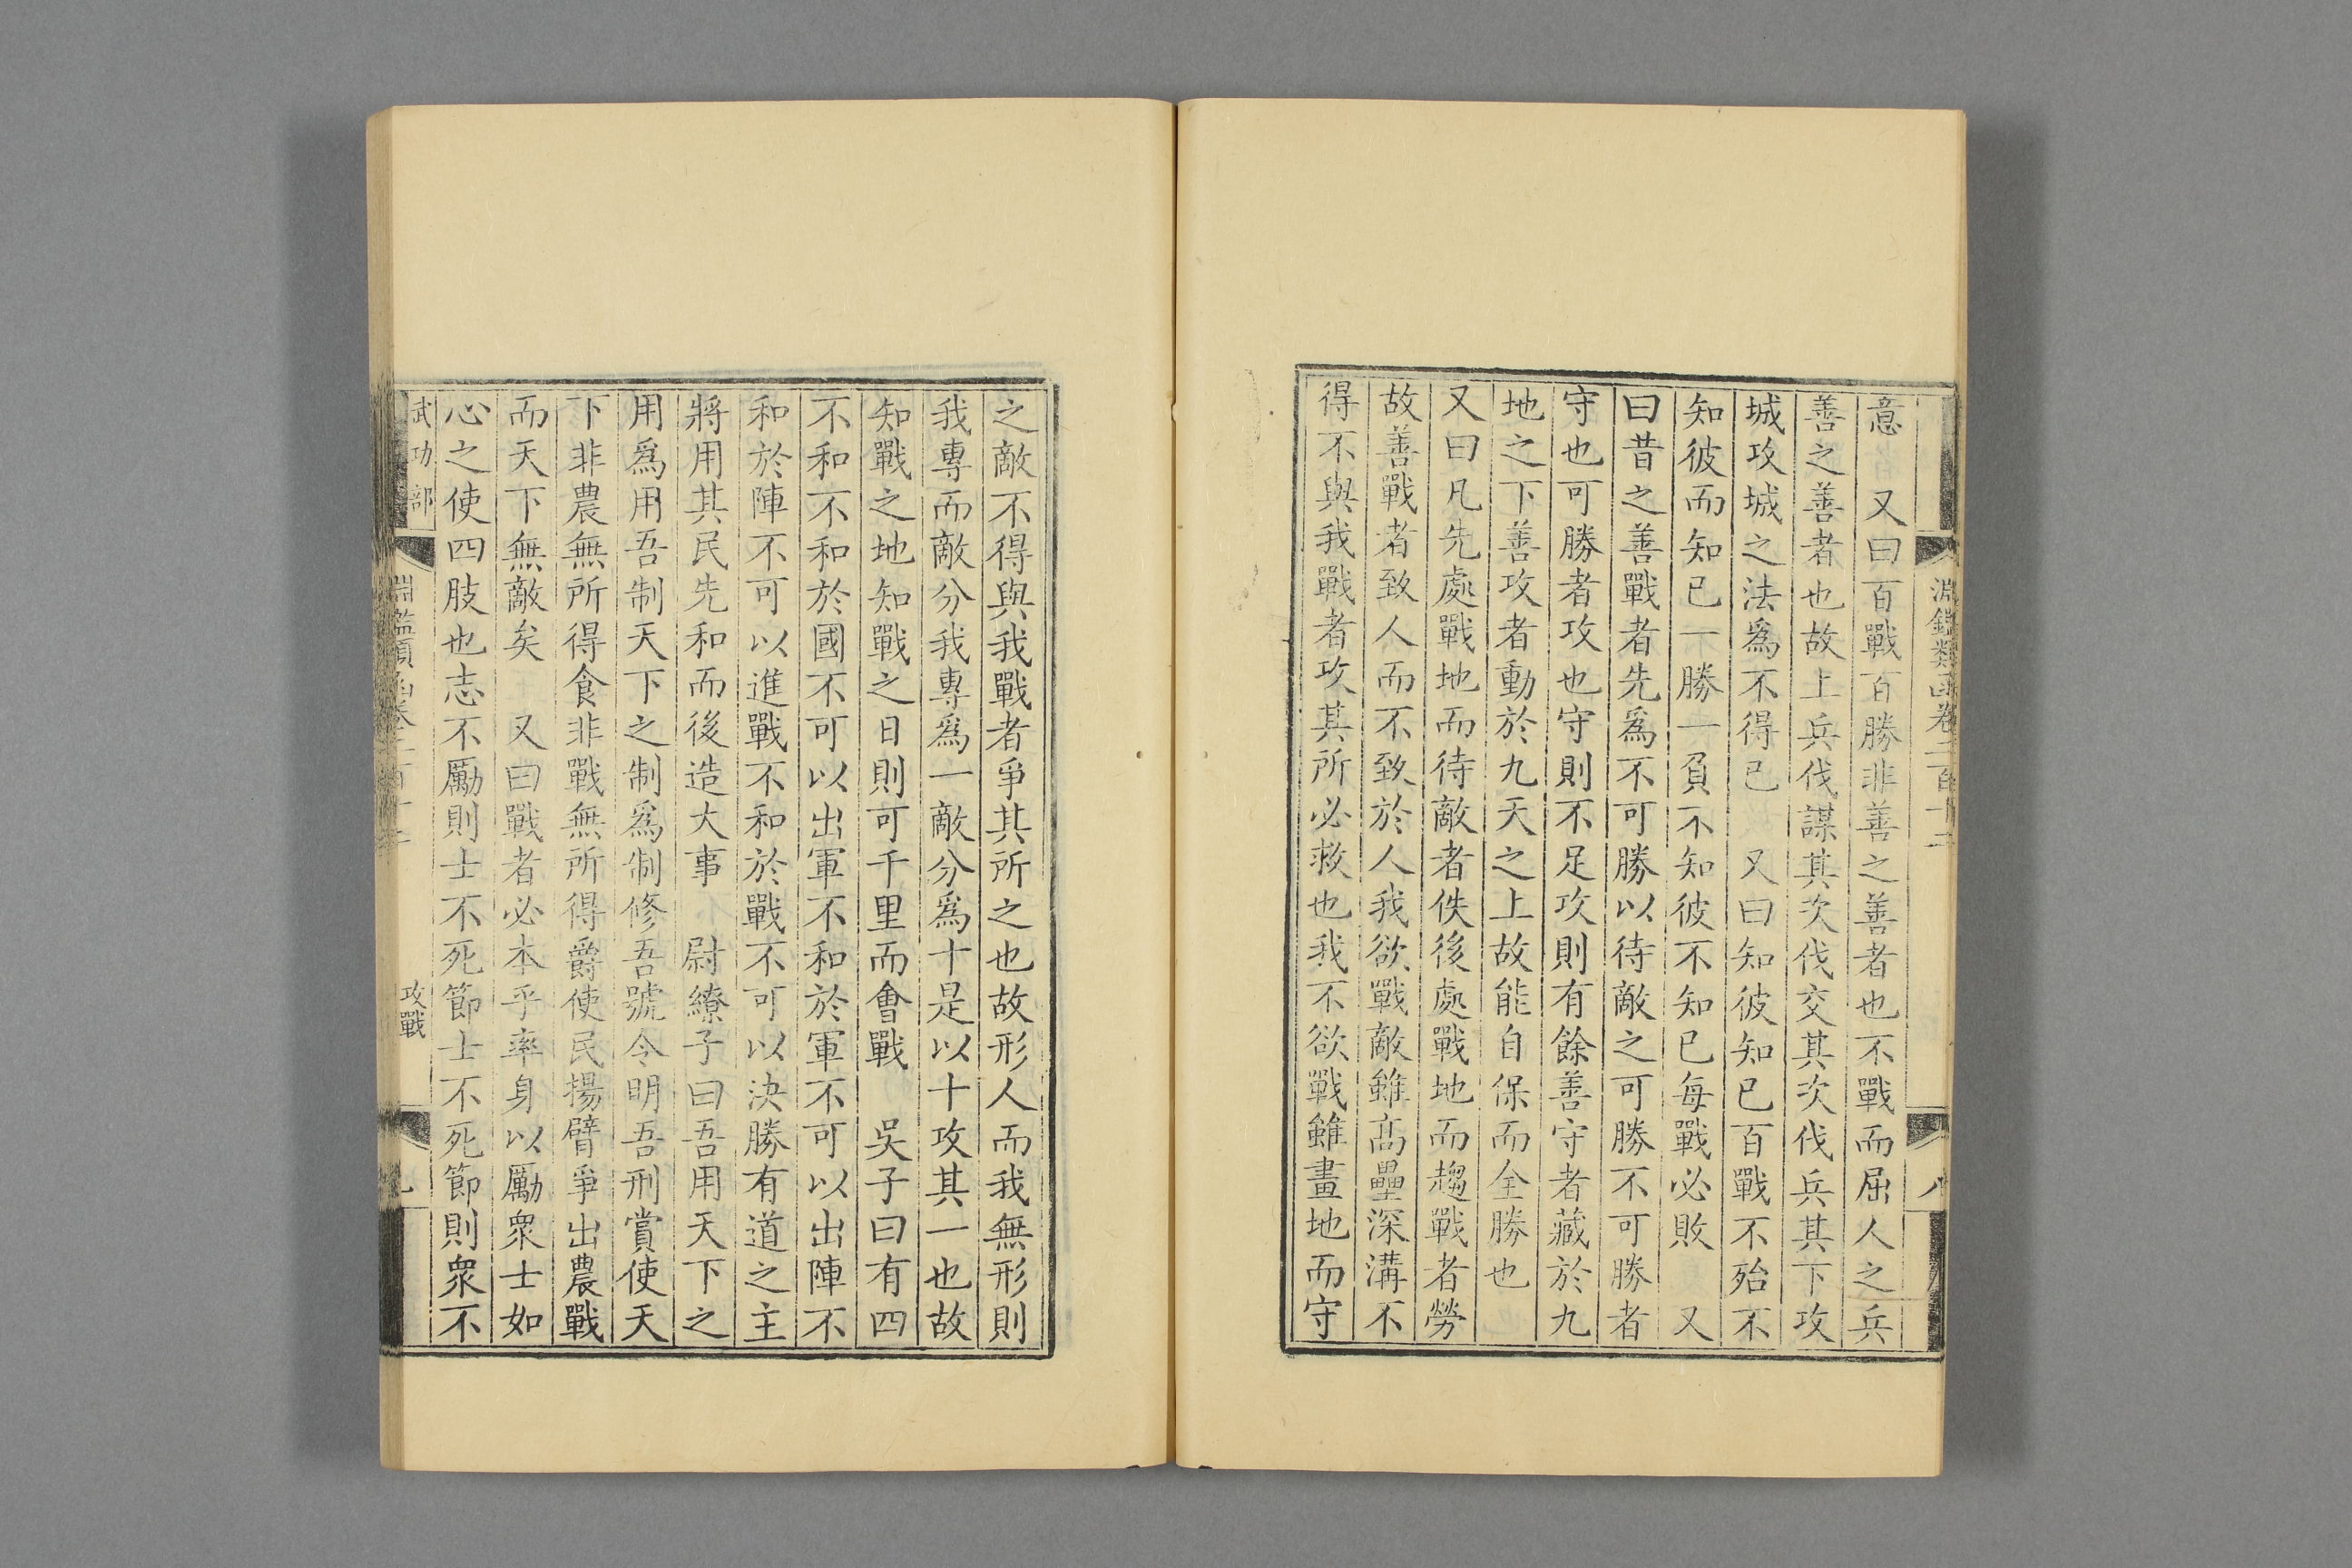 淵鑑類函卷二百十二
八
意　又曰百戰百勝非善之善者也不戰而屈人之兵
善之善者也故上兵伐謀其次伐交其次伐兵其下攻
城攻城之法爲不得已　又曰知彼知已百戰不殆不
知彼而知已一勝一負不知彼不知已每戰必敗　又
曰昔之善戰者先爲不可勝以待敵之可勝不可勝者
守也可勝者攻也守則不足攻則有餘善守者藏於九
地之下善攻者動於九天之上故能自保而全勝也
又曰凡先處戰地而待敵者佚後處戰地而趨戰者勞
故善戰者致人而不致於人我欲戰敵雖高壘深溝不
得不與我戰者攻其所必救也我不欲戰雖畫地而守
之敵不得與我戰者爭其所之也故形人而我無形則
我專而敵分我專爲一敵分爲十是以十攻其一也故
知戰之地知戰之日則可千里而會戰　吳子曰有四
不和不和於國不可以出軍不和於軍不可以出陣不
和於陣不可以進戰不和於戰不可以決勝有道之主
將用其民先和而後造大事　尉繚子曰吾用天下之
用爲用吾制天下之制爲制修吾號令明吾刑賞使天
下非農無所得食非戰無所得爵使民揚臂爭出農戰
而天下無敵矣　又曰戰者必本乎率身以勵衆士如
心之使四肢也志不勵則士不死節士不死節則衆不
武功部
淵鑑類函卷二百十二
攻戰